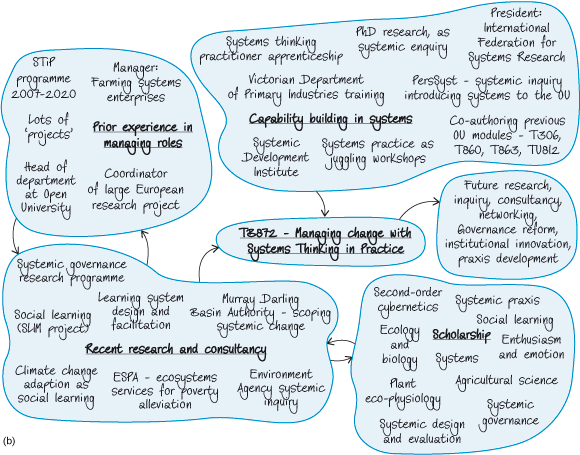 STiP
programme
2007-2020
Manager:
Farming systems
enterprises
Lots of
'projects'
Prior experience in
managing roles
Head of
department
at Open
University
Coordinator
of large European
research project
Systems thinking
practitioner apprenticeship
PhD research, as
systemic enquiry
President:
International
Federation for
Systems Research
Victorian Department
of Primary Industries training
PersSyst - systemic inquiry
introducing systems to the OU
Capability building in systems
Systemic
Development
Institute
Systems practice as
juggling workshops
Co-authoring previous
OU modules - T306,
T860, T863, TU812
TB872 - Managing change with
Systems Thinking in Practice
Future research,
inquiry, consultancy,
networking,
Governance reform,
institutional innovation,
praxis development
Systemic governance
research programme
Social learning
(SLIM project)
Learning system
design and
facilitation
Murray Darling
Basin Authority - scoping
systemic change
Recent research and consultancy
Climate change
adaption as
social learning
ESPA - ecosystems
services for poverty
alleviation
Environment
Agency systemic
inquiry
Second-order
cybernetics
Systemic praxis
Social learning
Ecology
and
biology
Scholarship
Systems
Enthusiasm
and emotion
Plant
eco-physiology
Agricultural science
Systemic design
and evaluation
Systemic
governance
(b)